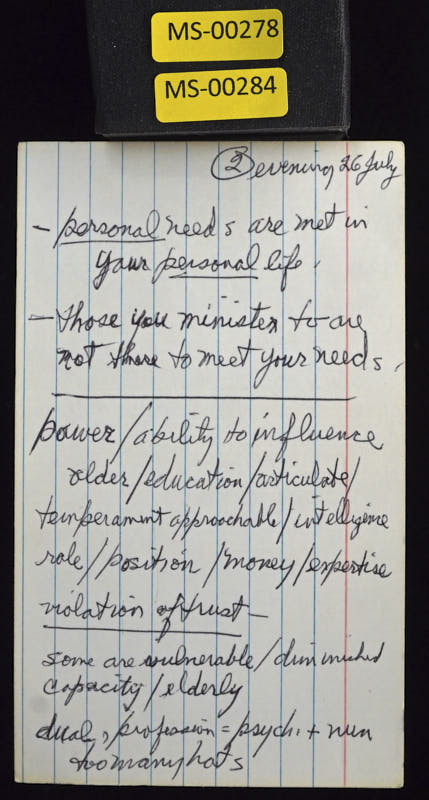 MS-00278
MS-00284
② evening 26 July
- personal needs are met in
your personal life.
- Those you minister to are
not there to meet your needs.
power/ability to influence
older/education/articulate/
temperament approachable/intelligence
role/position/money/expertise
violation of trust -
some are vulnerable/diminished
capacity/elderly
dual, profession = psych. + nun
too many hats